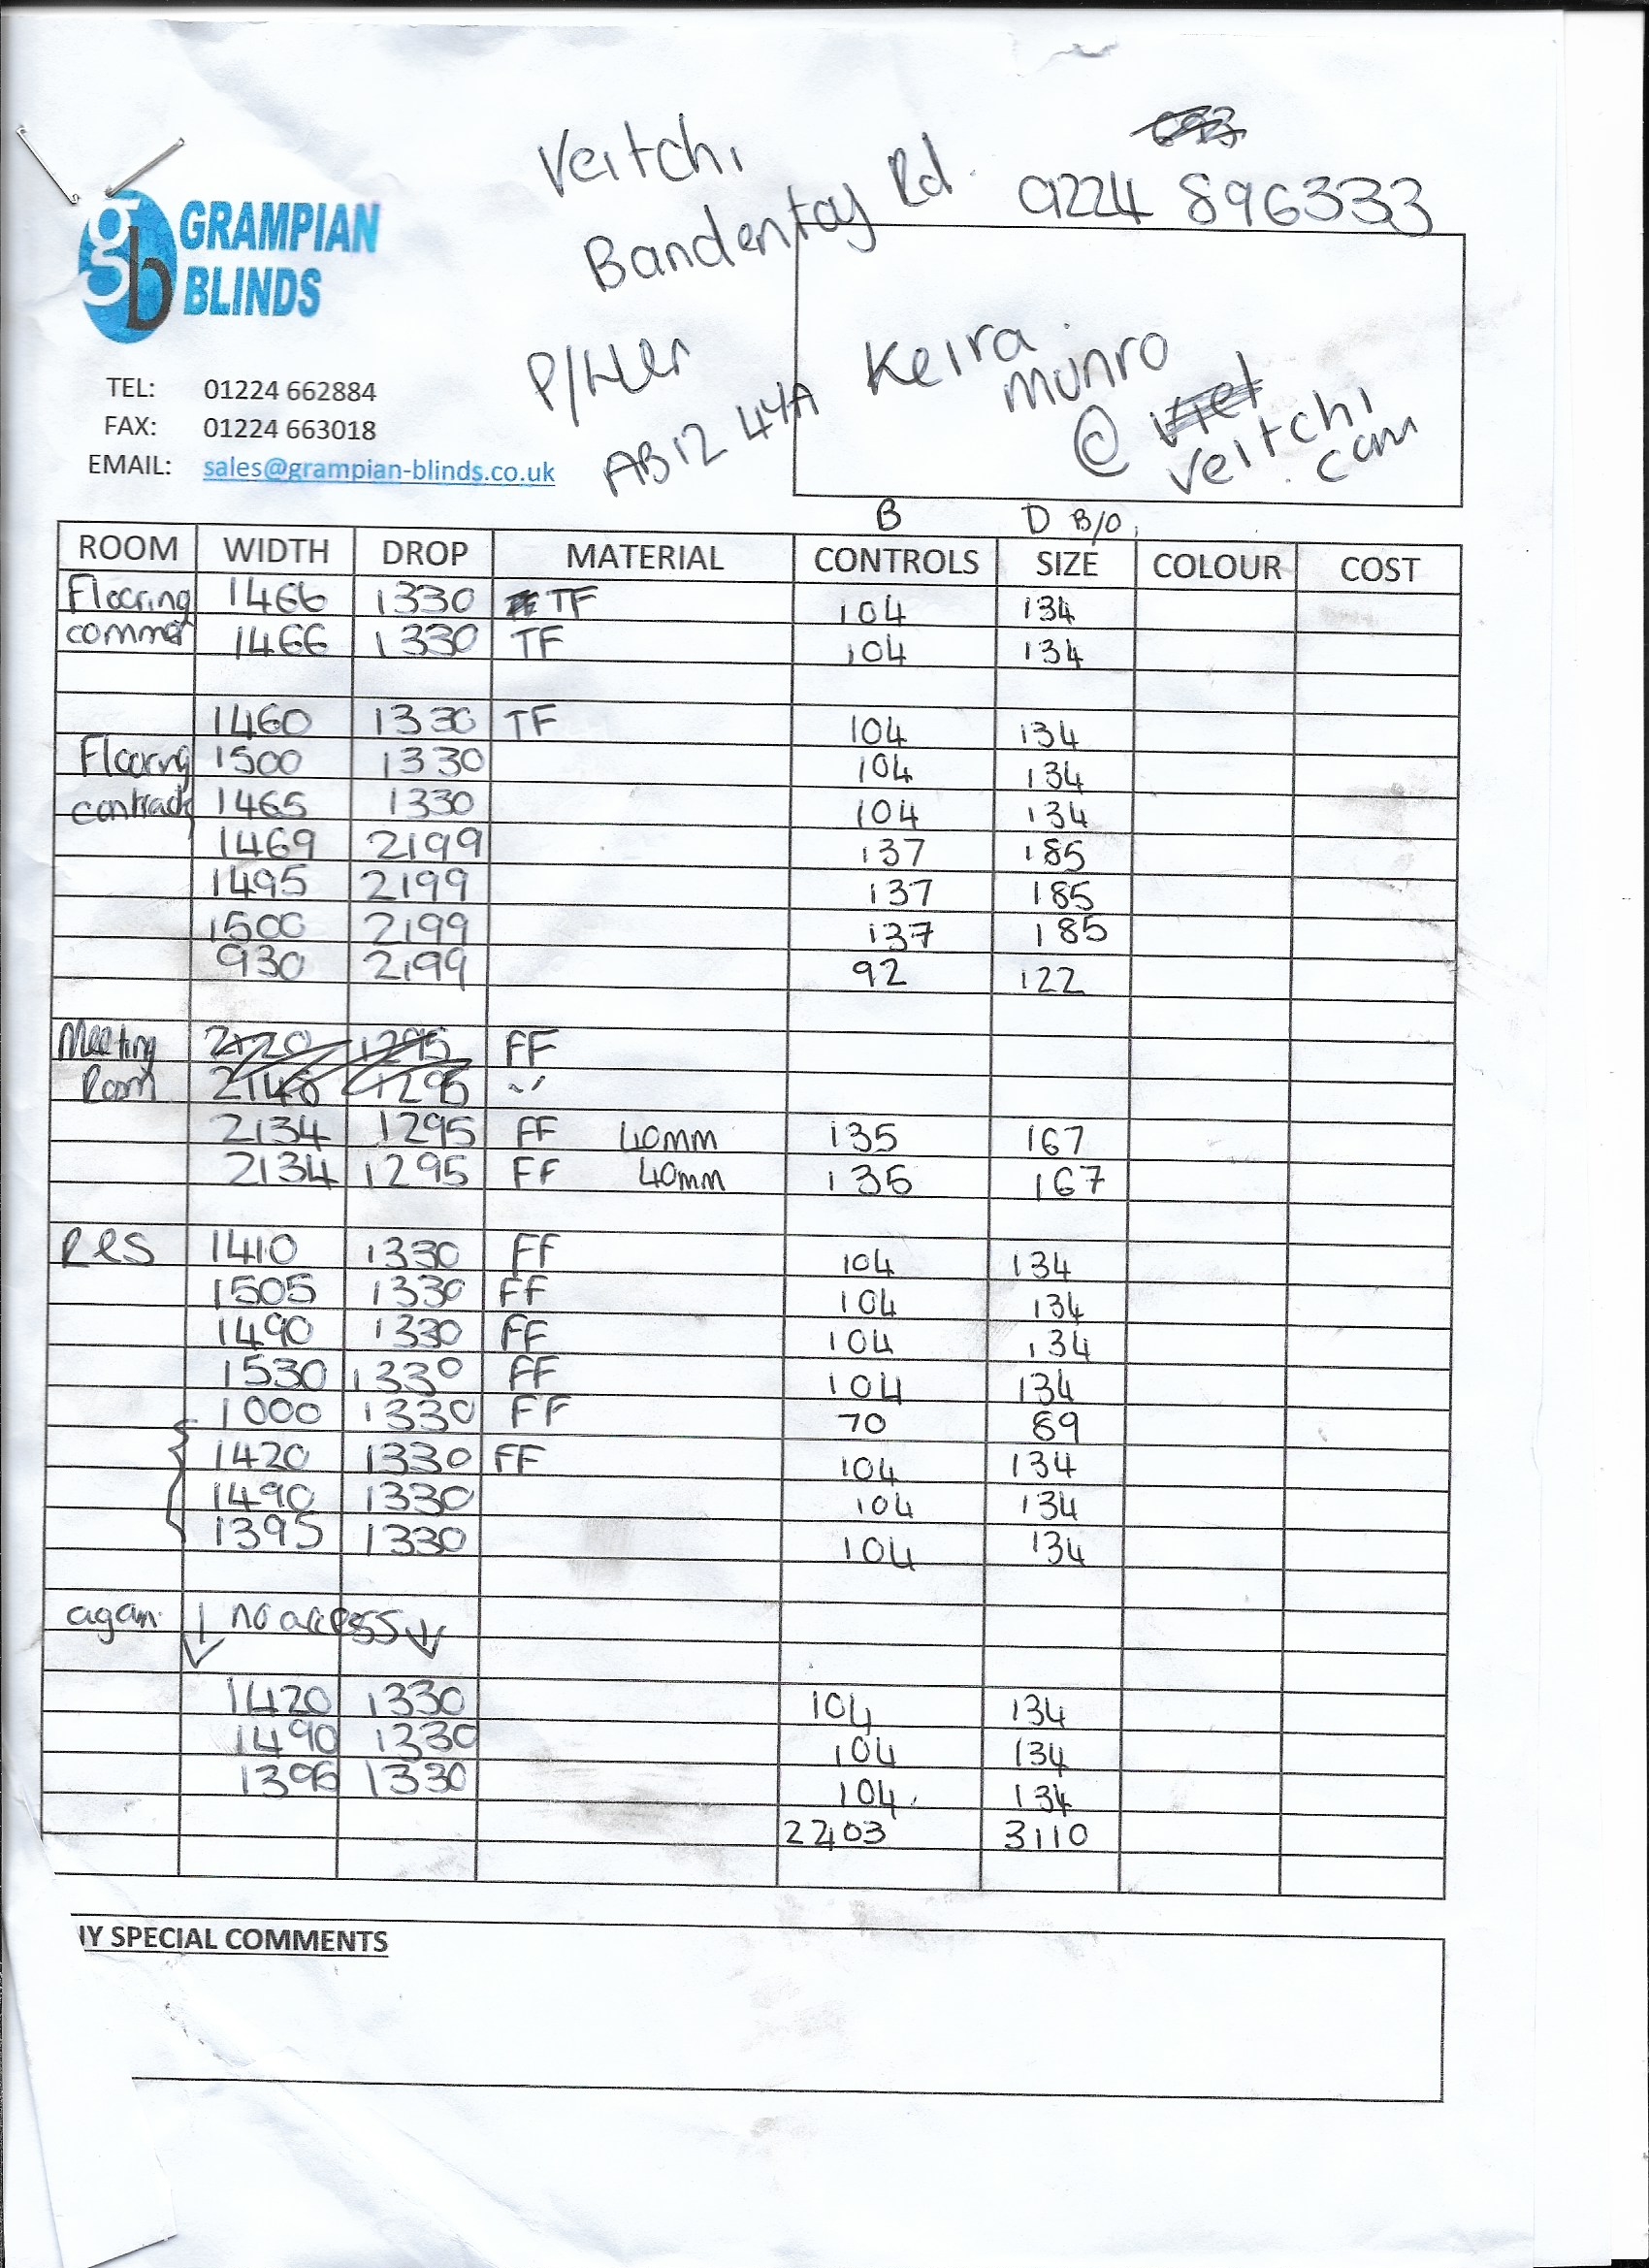 Veitchi
Bandentoy Rd. 01224 896333
GRAMPIAN
BLINDS
P/tler
AB12 4YA
Keira
munro
@
veitchi
.com
TEL: 01224 662884
FAX: 01224 663018
EMAIL: sales@grampian-blinds.co.uk
B D B/O
ROOM WIDTH DROP MATERIAL CONTROLS SIZE COLOUR COST
Flooring 1466 1330 TF 104 134
commer 1466 1330 TF 104 134
1460 1330 TF 104 134
Flooring 1500 1330 104 134
contracts 1465 1330 104 134
1469 2199 137 185
1495 2199 137 185
1500 2199 137 185
930 2199 92 122
Meeting 2120 1295 FF
Room 2148 1295 "
2134 1295 FF 40mm 135 167
2134 1295 FF 40mm 135 167
Res 1410 1330 FF 104 134
1505 1330 FF 104 134
1490 1330 FF 104 134
1530 1330 FF 104 134
1000 1330 FF 70 89
1420 1330 FF 104 134
1490 1330 104 134
1395 1330 104 134
again ↓ no access ↓
1420 1330 104 134
1490 1330 104 134
1396 1330 104 134
2403 3110
NY SPECIAL COMMENTS